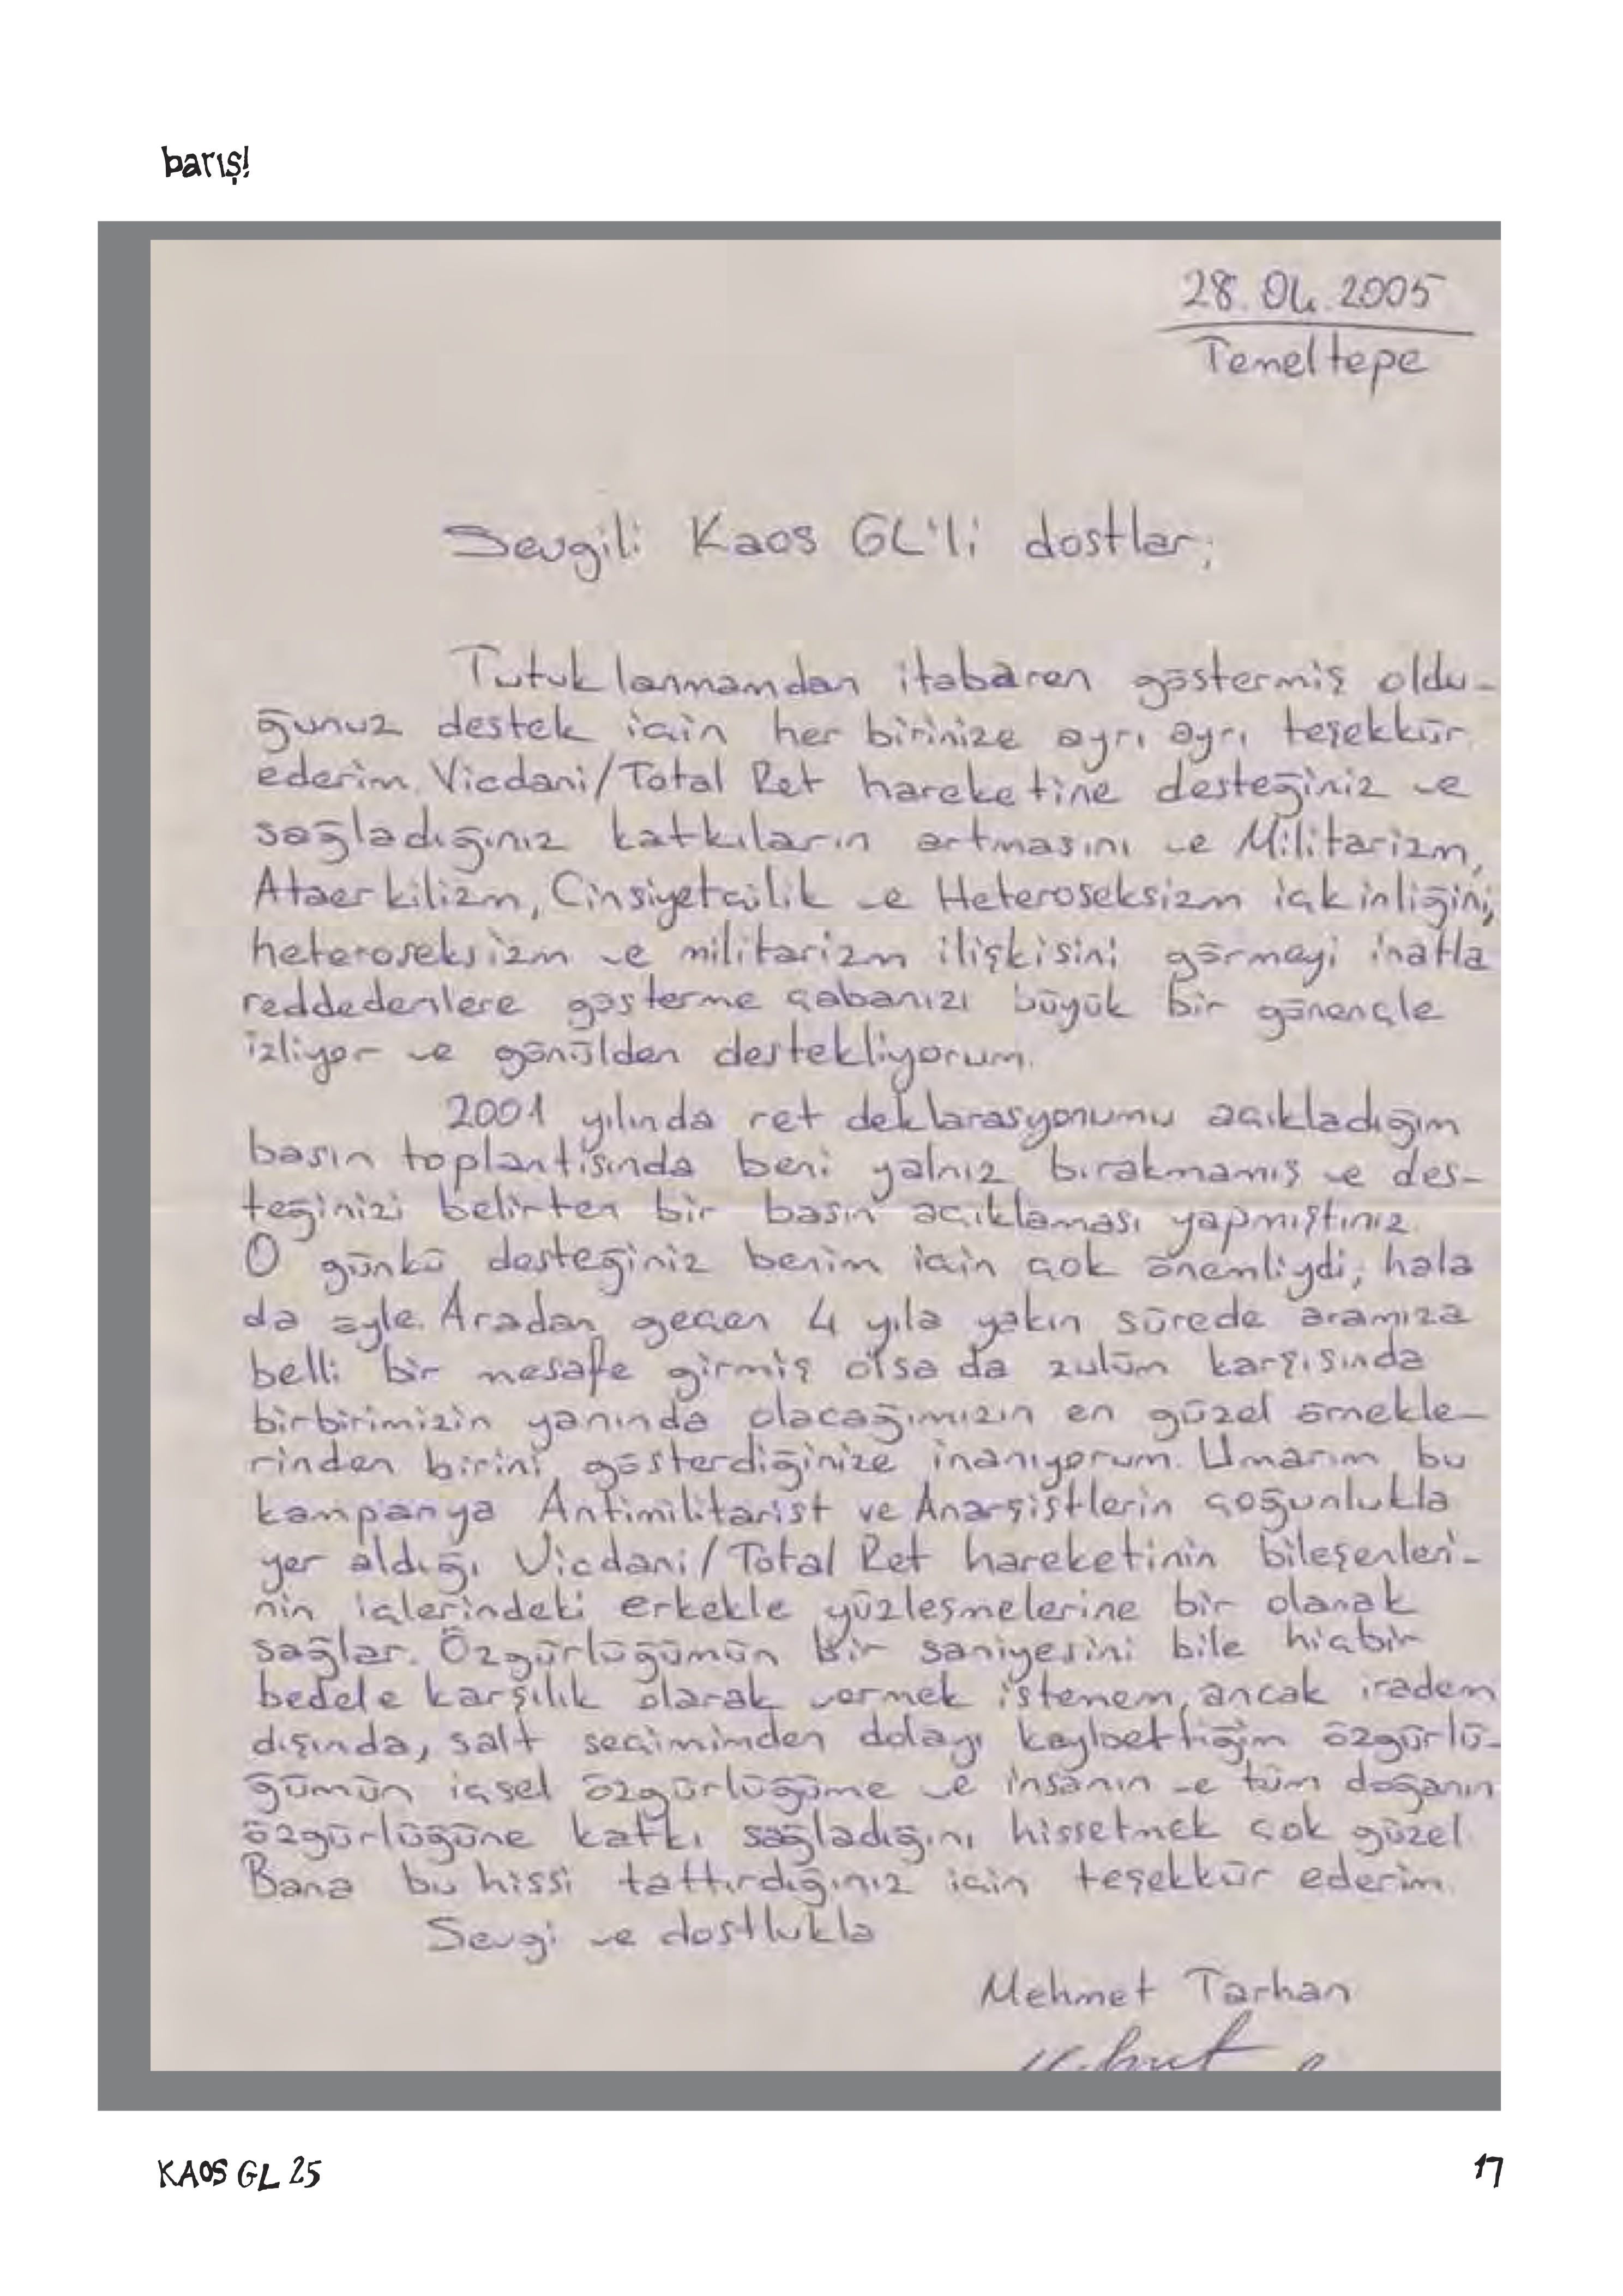 barış!
28.04.2005
Temeltepe
Sevgili Kaos GL'li dostlar;
Tutuklanmamdan itabaren göstermiş oldu-
ğunuz destek için her birinize ayrı ayrı teşekkür
ederim. Vicdani/Total Ret hareketine desteğiniz ve
sağladığınız katkıların artmasını ve Militarizm,
Ataerkilizm, Cinsiyetçilik ve Heteroseksizm içkinliğini;
heteroseksizm ve militarizm ilişkisini görmeyi inatla
reddedenlere gösterme çabanızı büyük bir gönençle
izliyor ve gönülden destekliyorum.
2001 yılında ret deklarasyonumu açıkladığım
basın toplantısında beni yalnız bırakmamış ve des-
teğinizi belirten bir basın açıklaması yapmıştınız.
O günkü desteğiniz benim için çok önemliydi, hala
da öyle. Aradan geçen 4 yıla yakın sürede aramıza
belli bir mesafe girmiş olsa da zulüm karşısında
birbirimizin yanında olacağımızın en güzel örnekle-
rinden birini gösterdiğinize inanıyorum. Umarım bu
kampanya Antimilitarist ve Anarşistlerin çoğunlukla
yer aldığı Vicdani/Total Ret hareketinin bileşenleri-
nin içlerindeki erkekle yüzleşmelerine bir olanak
sağlar. Özgürlüğümün bir saniyesini bile hiçbir
bedele karşılık olarak vermek istemem, ancak iradem
dışında, salt seçimimden dolayı kaybettiğim özgürlü-
ğümün içsel özgürlüğüme ve insanın ve tüm doğanın
özgürlüğüne katkı sağladığını hissetmek çok güzel.
Bana bu hissi tattırdığınız için teşekkür ederim.
Sevgi ve dostlukla
Mehmet Tarhan
KAOS GL 25
17